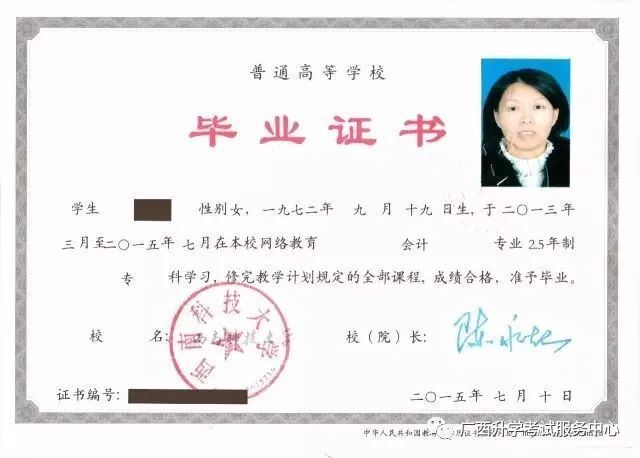 普通高等学校
毕业证书
学生 性别女,一九七二年 九 月 十九 日生,于二〇一三年
三月至二〇一五年 七月在本校网络教育 会计 专业 2.5年制
专 科学习,修完教学计划规定的全部课程,成绩合格,准予毕业。
校 名: 西南科技大学 校(院)长:
西南科技大学
证书编号: 二〇一五年 七 月 十 日
中华人民共和国教育
广西升学考试服务中心